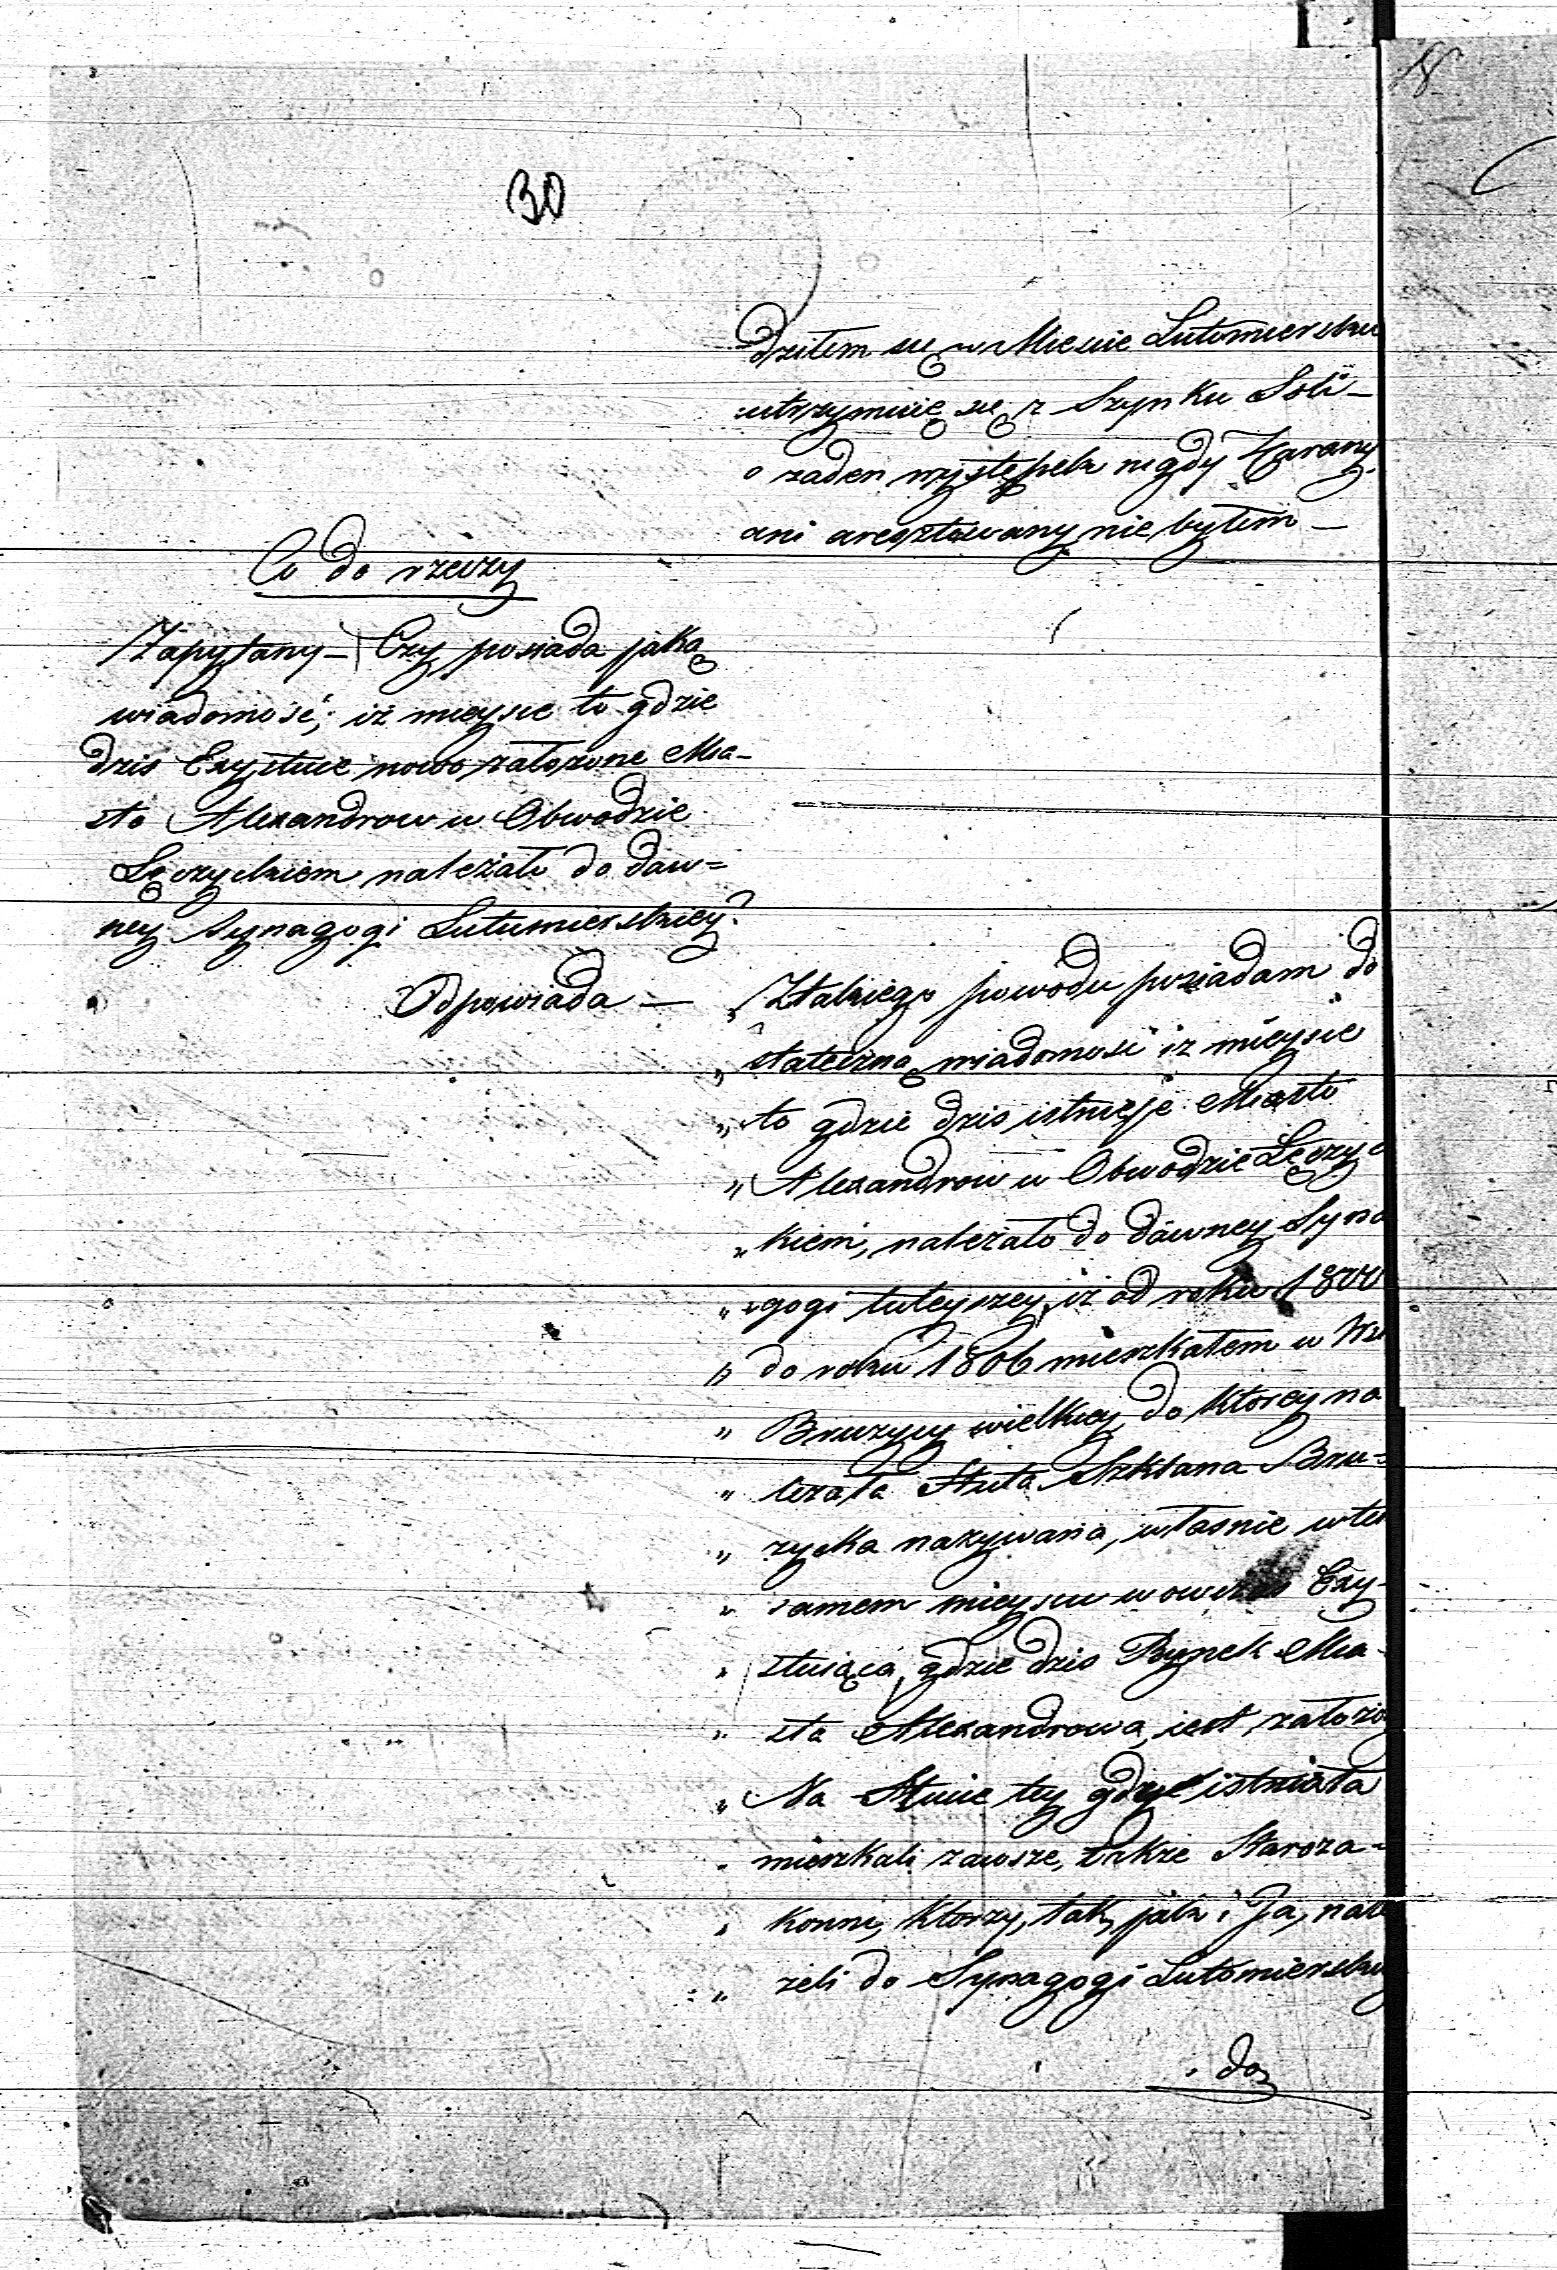 30
dziłem się w Mieście Lutomiersku
utrzymuię się z Szynku Soli –
o żaden występek nigdy Karany
ani aresztowany nie byłem –
Co do rzeczy
Zapytany – Czy posiada jaką
wiadomość; iż mieysce to gdzie
dziś Exystuie nowo założone Mia-
sto Alexandrow w Obwodzie
Łęczyckiem należało do daw=
ney Synagogi Lutumierskiey?
Odpowiada —
„ Z takiego powodu posiadam do
„ stateczną wiadomość iż mieysce
„ to gdzie dziś istnieje Miasto
„ Alexandrow w Obwodzie Łęczyc
„ kiem, należało do dawney Syna
„ gogi tuteyszey, iż od roku 1800
„ do roku 1806 mieszkałem w Wsi
„ Bruzycy wielkiey, do ktorey na
„ leżała Huta Szklana Bru=
„ zycka nazywana, właśnie w tem
„ samem mieyscu wowczas Exy-
„ stuiąca, gdzie dziś Rynek Mia-
„ sta Alexandrowa, iest założo
„ Na Hucie tey gdy istniała
„ mieszkali zawsze, także Staroza=
„ konni, ktorzy, tak jak i Ja, nale
„ żeli do Synagogi Lutomierskiey